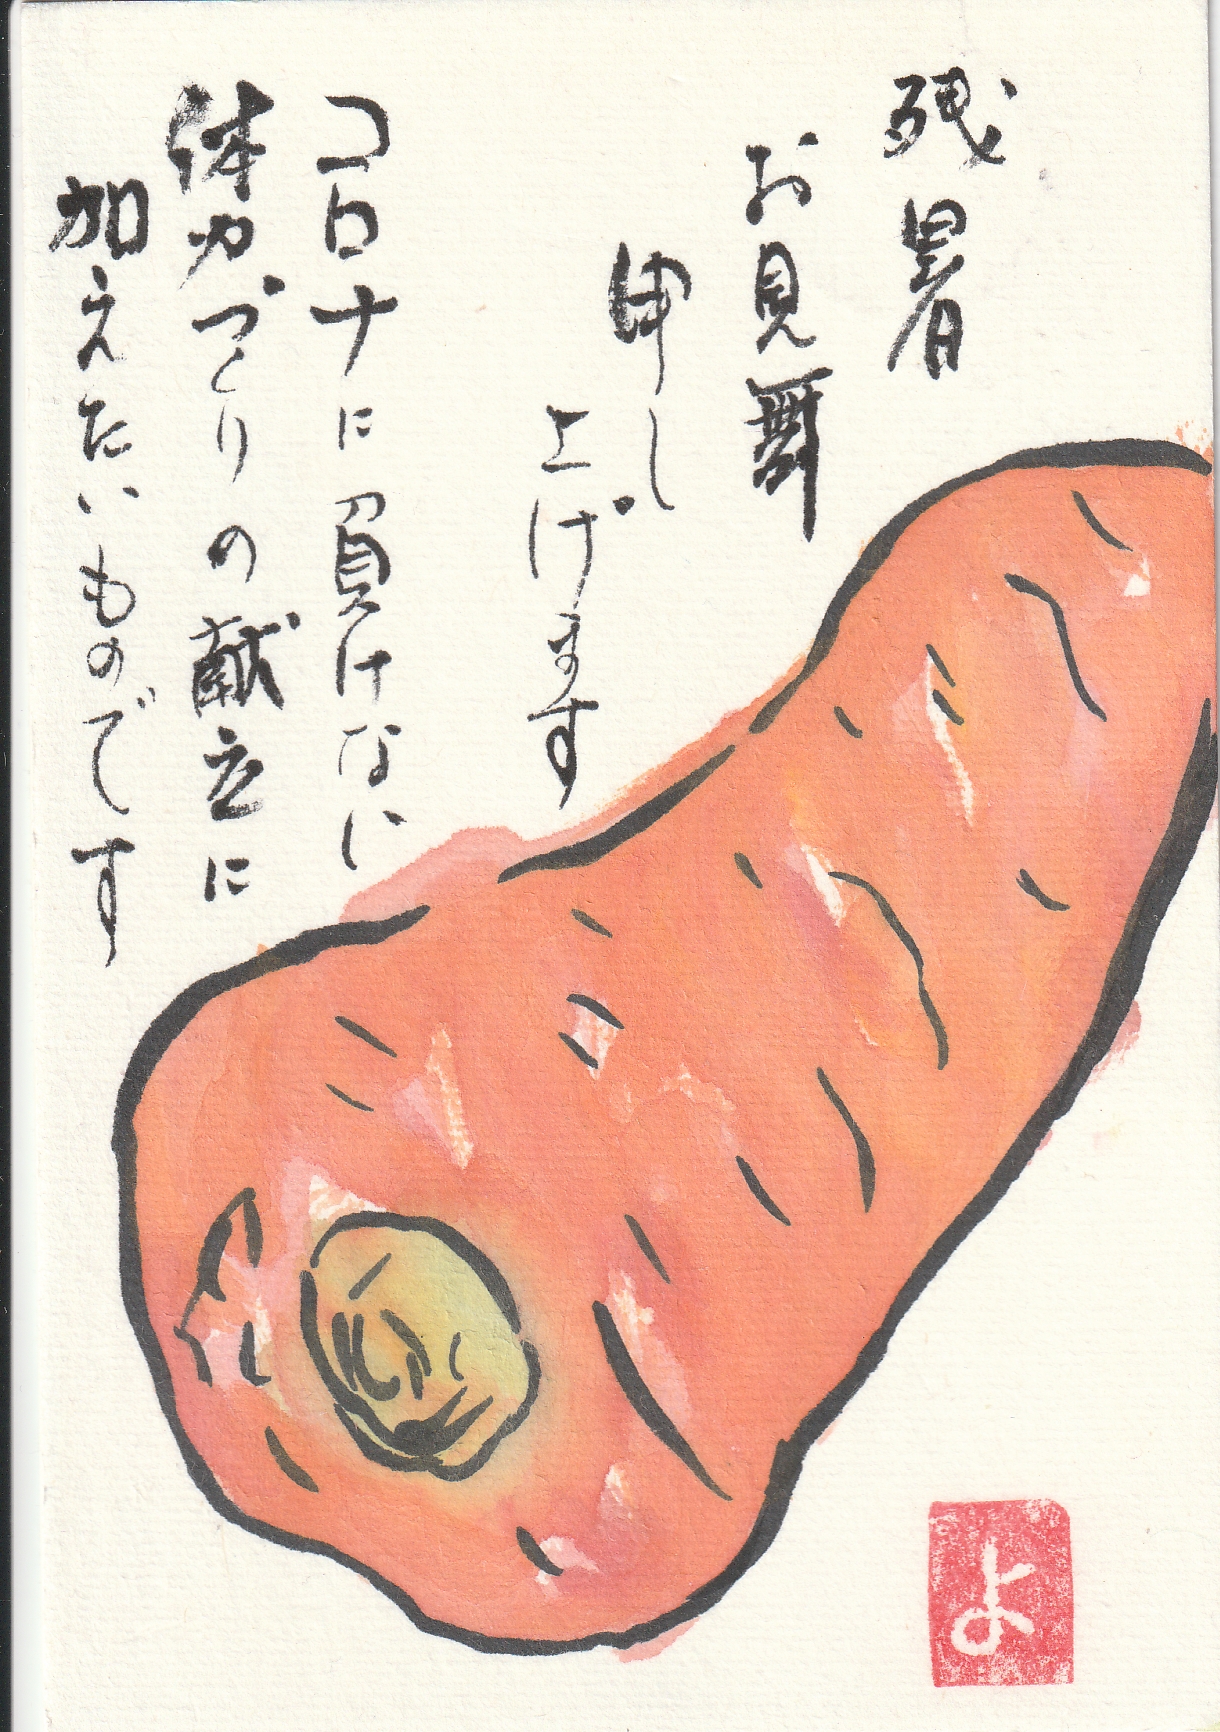 残暑
お見舞
申し
上げます
コロナに負けない
体力づくりの献立に
加えたいものです
よ